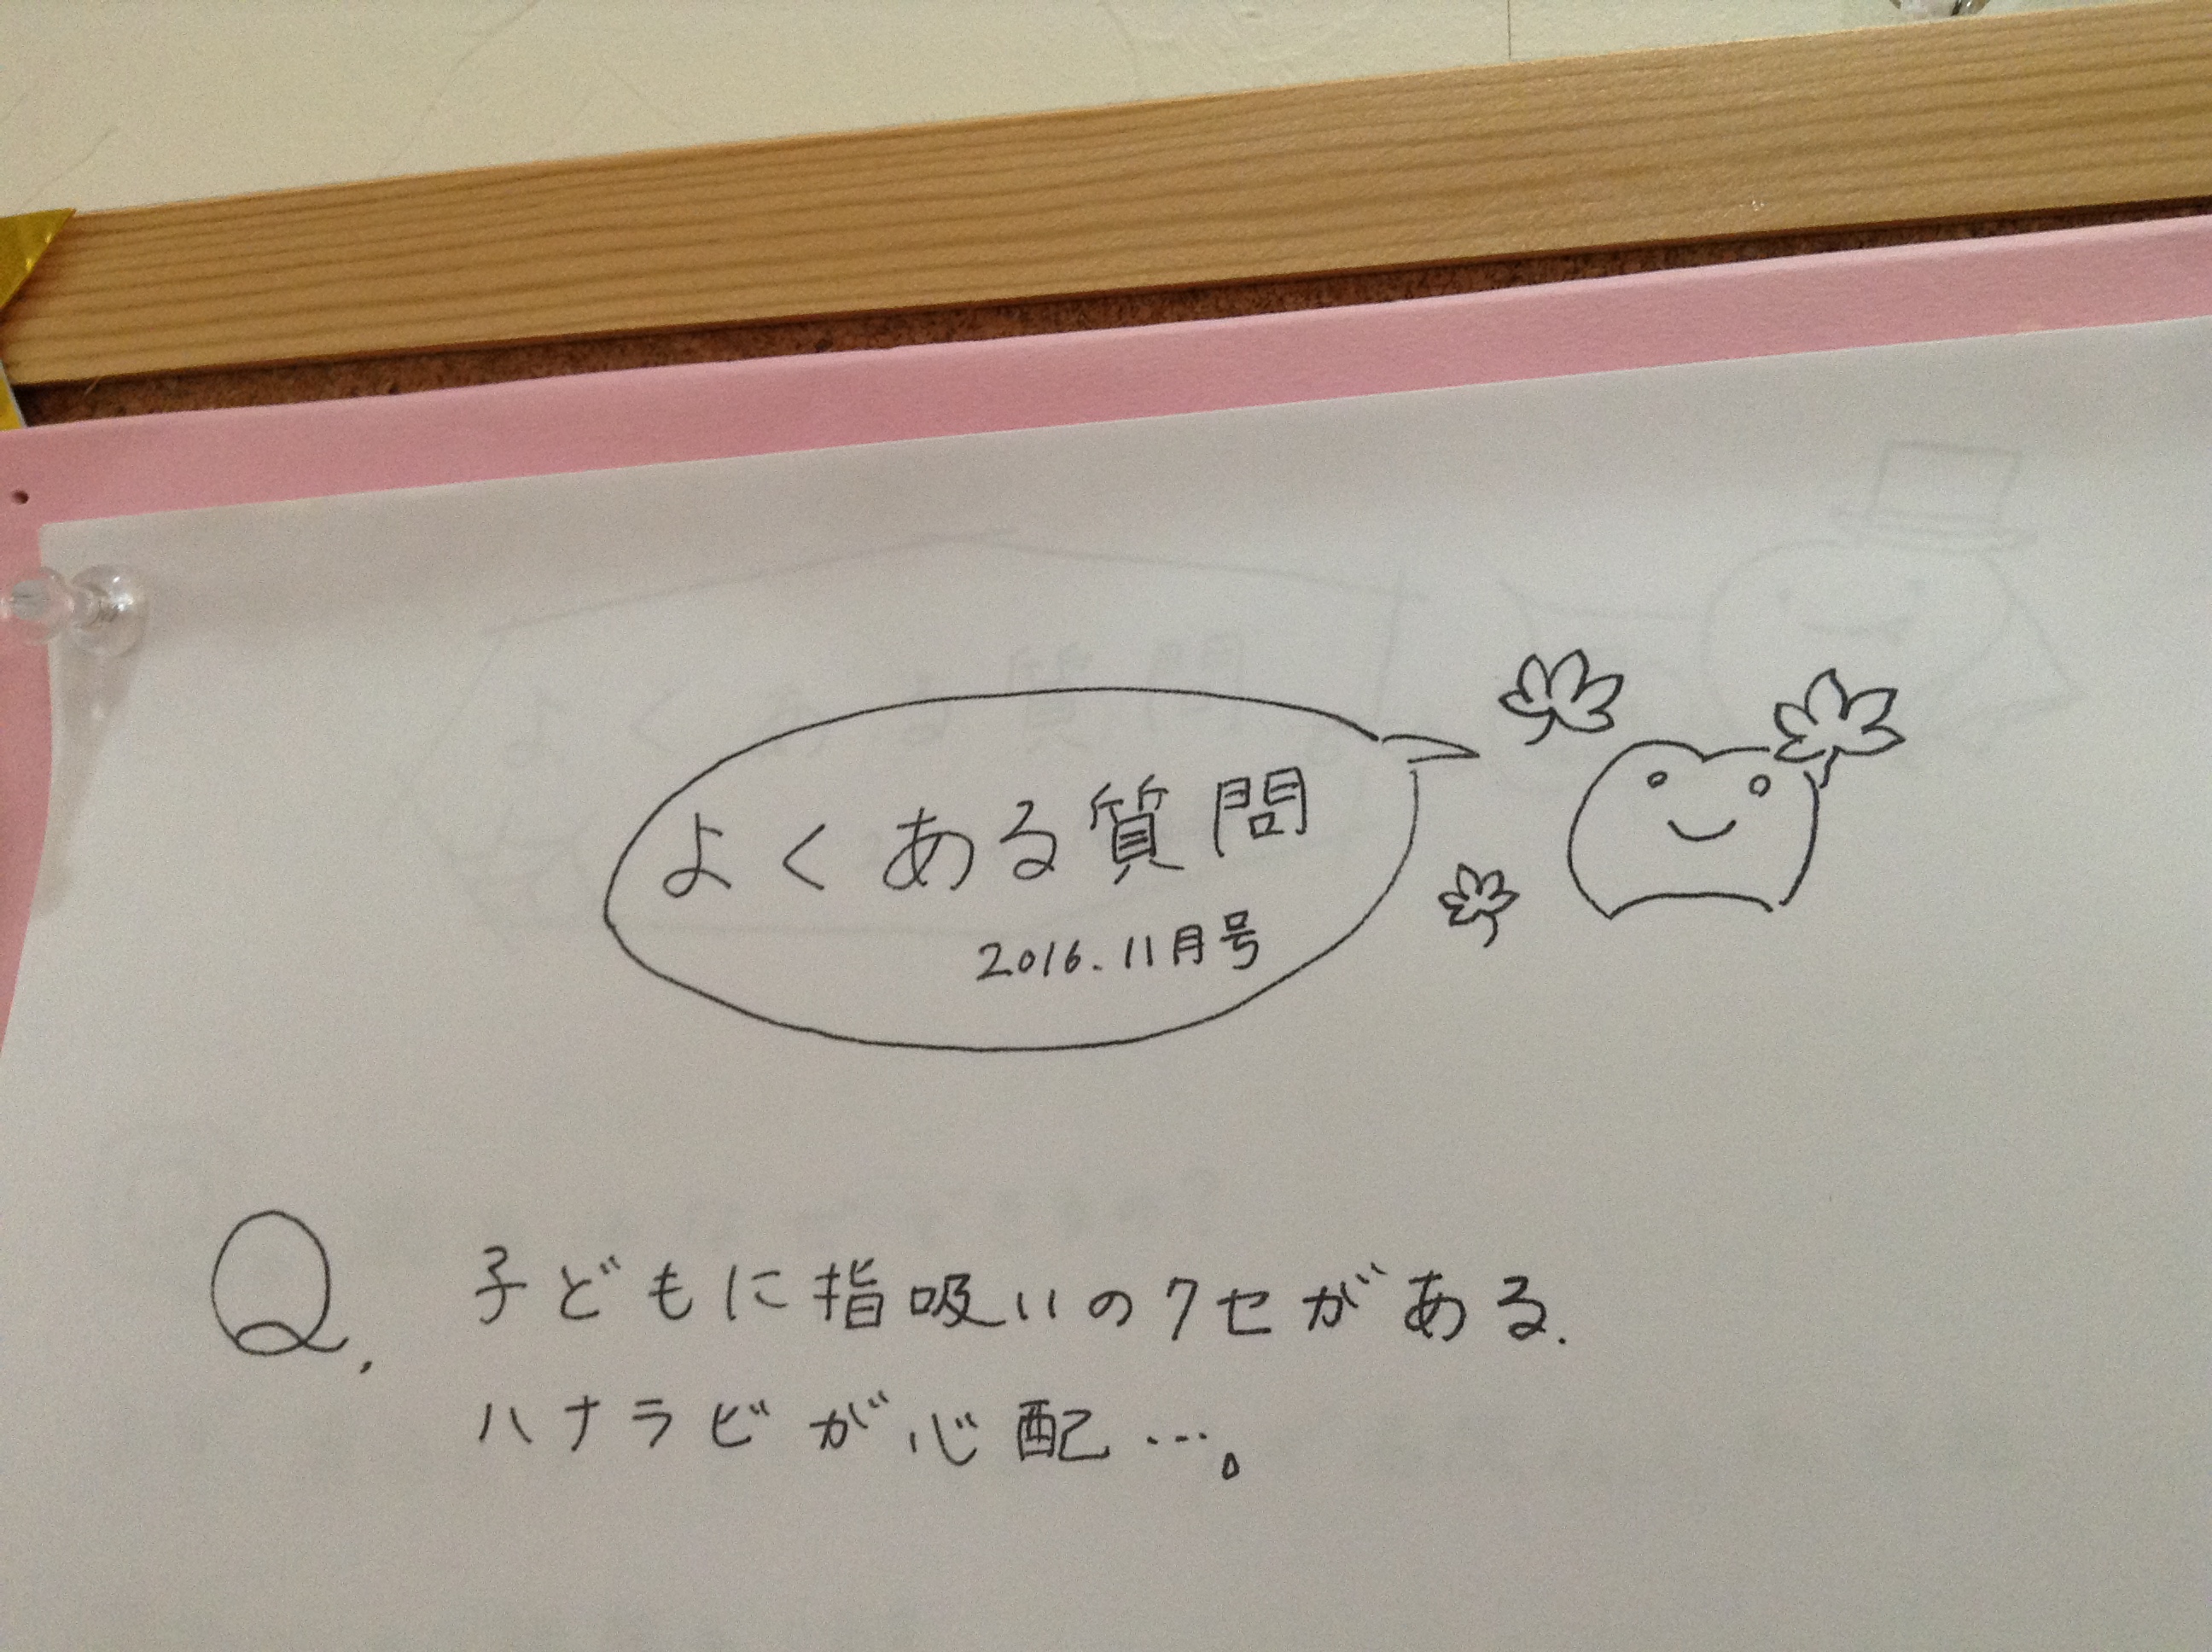 よくある質問
2016.11月号
Q. 子どもに指吸いのクセがある.
ハナラビが心配…。